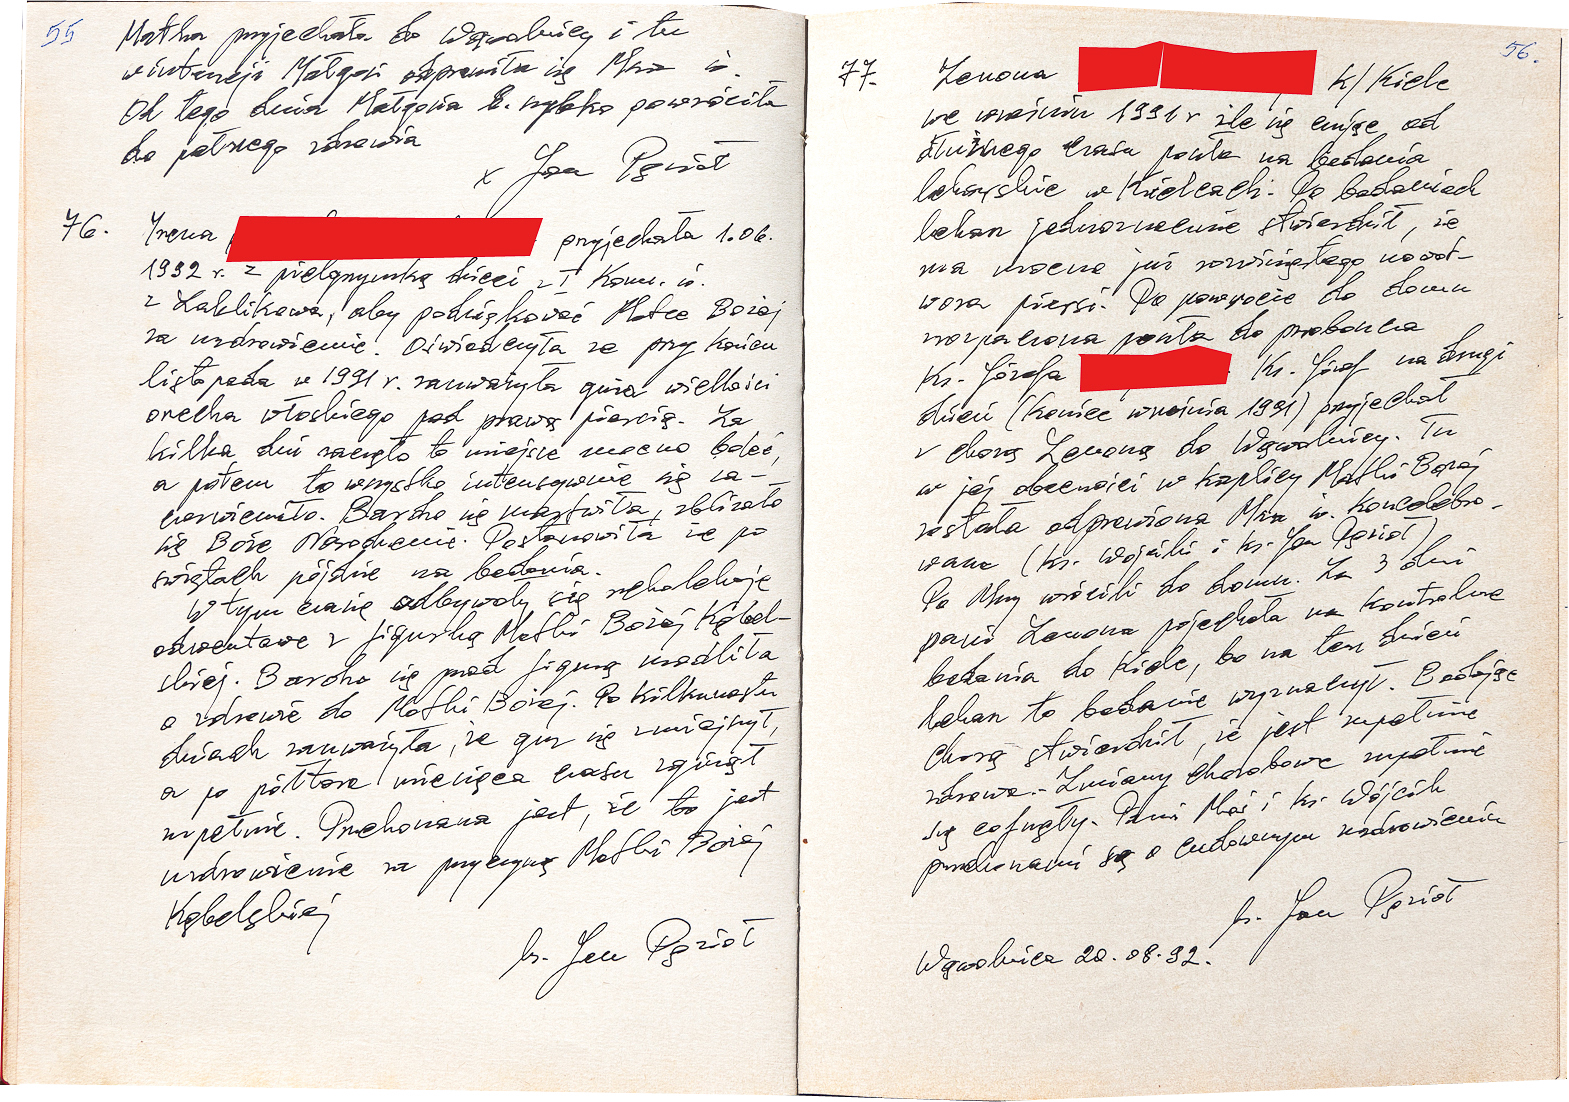 55
Matka przyjechała do Wąwolnicy i tu
w intencji Małgosi odprawiła się Msza św.
Od tego dnia Małgosia B. szybko powróciła
do pełnego zdrowia
x Jan Pęzioł
76. Irena przyjechała 1.06.
1992 r. z pielgrzymką dzieci z I Kom. św.
z Zaklikowa, aby podziękować Matce Bożej
za uzdrowienie. Oświadczyła że przy końcu
listopada w 1991 r. zauważyła guza wielkości
orzecha włoskiego pod prawą piersią. Za
kilka dni zaczęło to miejsce mocno boleć,
a potem to wszystko intensywnie się za-
czerwieniło. Bardzo się martwiła, zbliżało
się Boże Narodzenie. Postanowiła że po
świętach pójdzie na badania.
W tym czasie odbywały się rekolekcje
adwentowe z figurką Matki Bożej Kębel-
skiej. Bardzo się przed figurą modliła
o zdrowie do Matki Bożej. Po kilkunastu
dniach zauważyła, że guz się zmniejszył,
a po półtora miesiąca czasu zginął
zupełnie. Przekonana jest, że to jest
uzdrowienie za przyczyną Matki Bożej
Kębelskiej
ks. Jan Pęzioł
56.
77. Zenona k/Kielc
we wrześniu 1991 r źle się czując od
dłuższego czasu poszła na badania
lekarskie w Kielcach. Po badaniach
lekarz jednoznacznie stwierdził, że
ma mocno już rozwiniętego nowot-
wora piersi. Po powrocie do domu
zrozpaczona poszła do proboszcza
Ks. Józefa Ks. Józef na drugi
dzień (koniec września 1991) przyjechał
z chorą Zenoną do Wąwolnicy. Tu
w jej obecności w kaplicy Matki Bożej
została odprawiona Msza św. koncelebro-
wana (ks. Wójcik i ks. Jan Pęzioł)
Po Mszy wrócili do domu. Za 3 dni
pani Zenona pojechała na kontrolne
badania do Kielc, bo na ten dzień
lekarz to badanie wyznaczył. Badając
chorą stwierdził, że jest zupełnie
zdrowa. - Zmiany chorobowe zupełnie
się cofnęły. Pani Maj i ks. Wójcik
przekonani są o cudownym uzdrowieniu
ks. Jan Pęzioł
Wąwolnica 20.08.92.